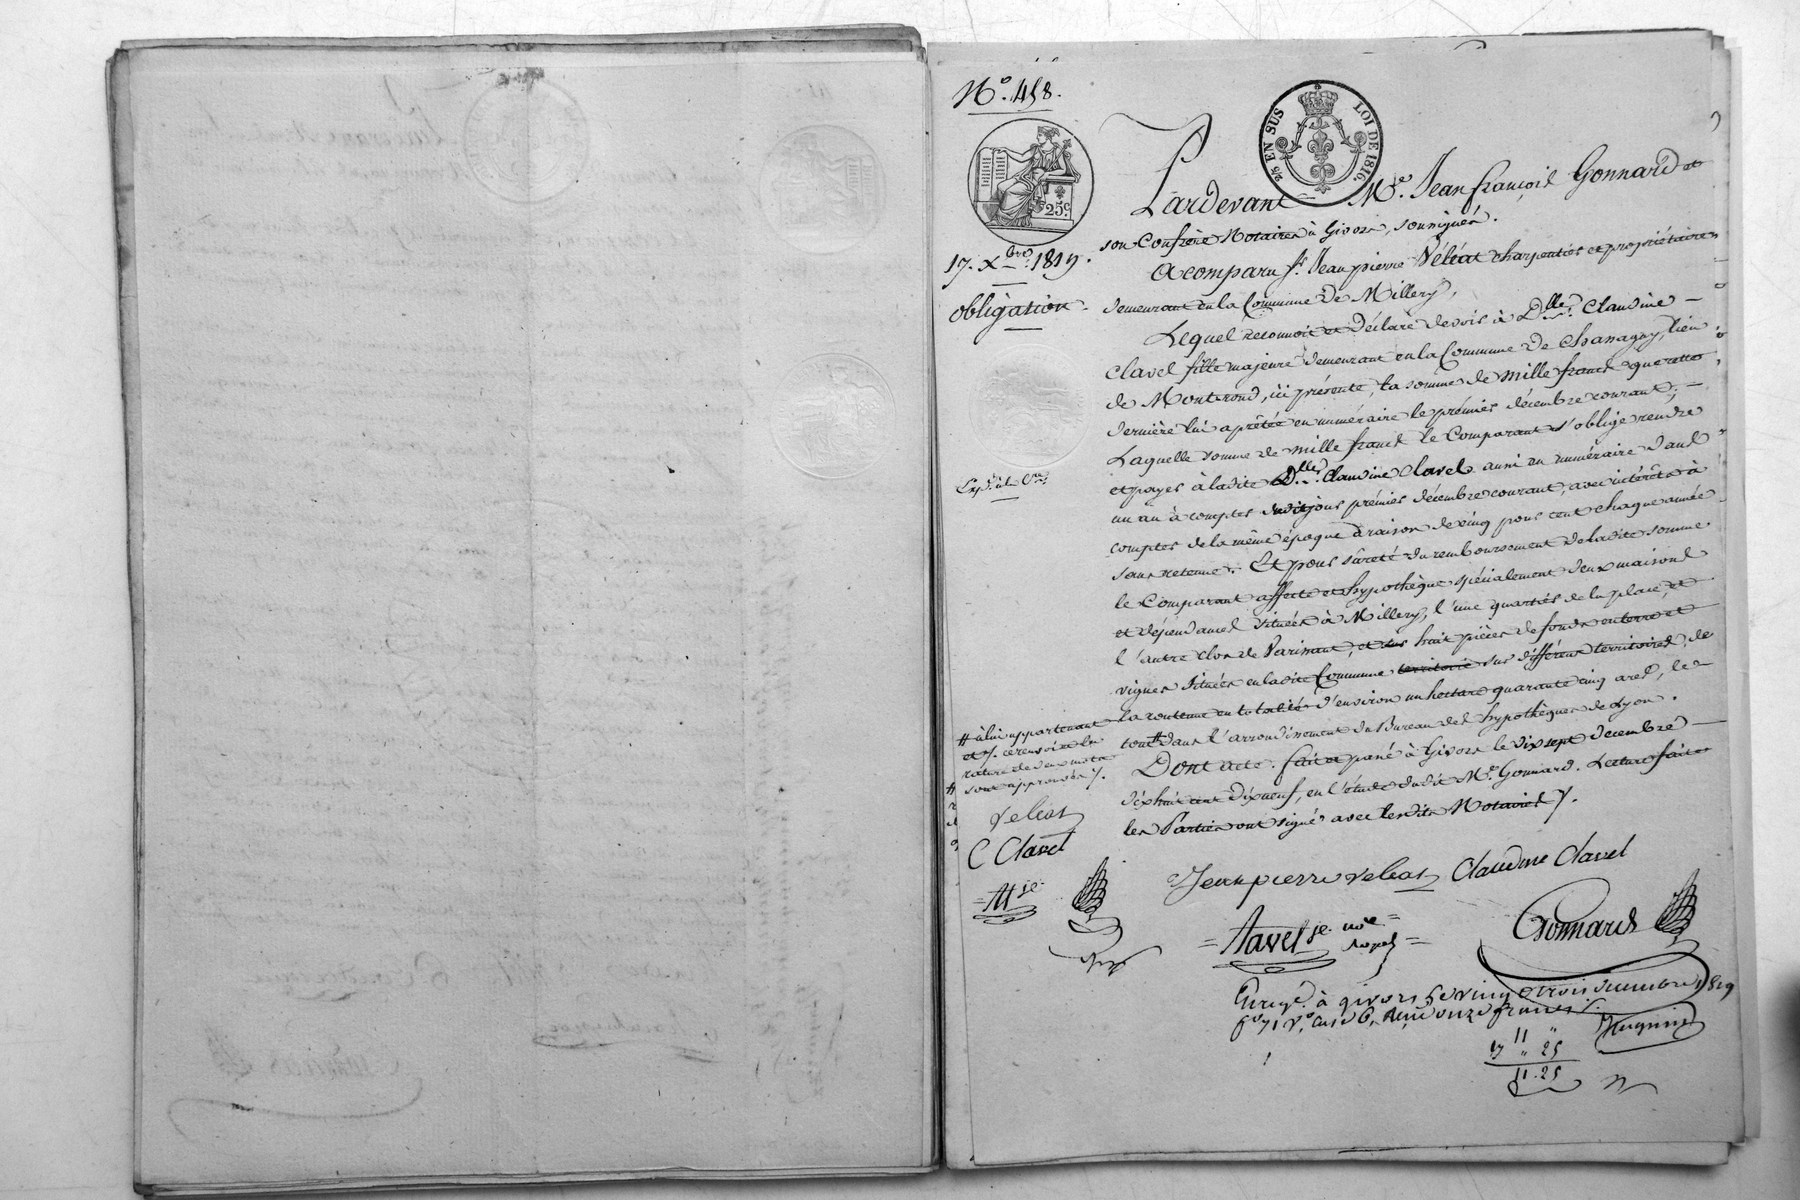 N.º 458.
25 EN SUS LOI DE 1816.
25c.
17. Xbre. 1819.
obligation.
Pardevant Me. Jean françois Gonnard et
son Confrère Notaires à Givors, soussignés.
A comparu sr. Jean pierre Véléat charpentier et propriétaire
demeurant en la Commune de Millery,
Lequel reconnoit et déclare devoir à Dlle. Claudine
Clavel fille majeure demeurant en la Commune de Chassagny, lieu
de Montrond, ici présente, la somme de mille francs que cette
dernière lui a prêtée en numéraire le prémier décembre courant;
Laquelle somme de mille francs le Comparant s'oblige rendre
et payer à ladite Dlle. Claudine Clavel aussi en numéraire dans
un an à compter dudit jour prémier décembre courant, avec intérêts à
compter de la même époque à raison de cinq pour cent chaque année
sans retenue. Et pour sûreté du remboursement de ladite somme
le Comparant affecte et hypothèque spécialement deux maisons
et dépendances situées à Millery, l'une quartier de la place, et
l'autre clos de et huit pièces de fonds en terre et
vignes situées en ladite Commune territoire sur différens territoires, de
la contenue en totalité d'environ un hectare quarante cinq ares, le
tout # dans l'arrondissement du Bureau des hypothèques de Lyon.
Dont acte. fait et passé à Givors le dix sept décembre
dix huit cent dix neuf, en l'étude dudit Me. Gonnard. Lecture faite
les Parties ont signé avec lesdits Notaires /.
# à lui appartenant
et /. ce renvoi et la
rature de deux mots
sont approuvés /.
veleat
C Clavel
Jean pierre veleat Claudine Clavel
Gonnard
Enregé. à givors le vingt trois décembre 1819
fo 71 vo, case 6, Reçu onze francs
11 "
" 25
11.25